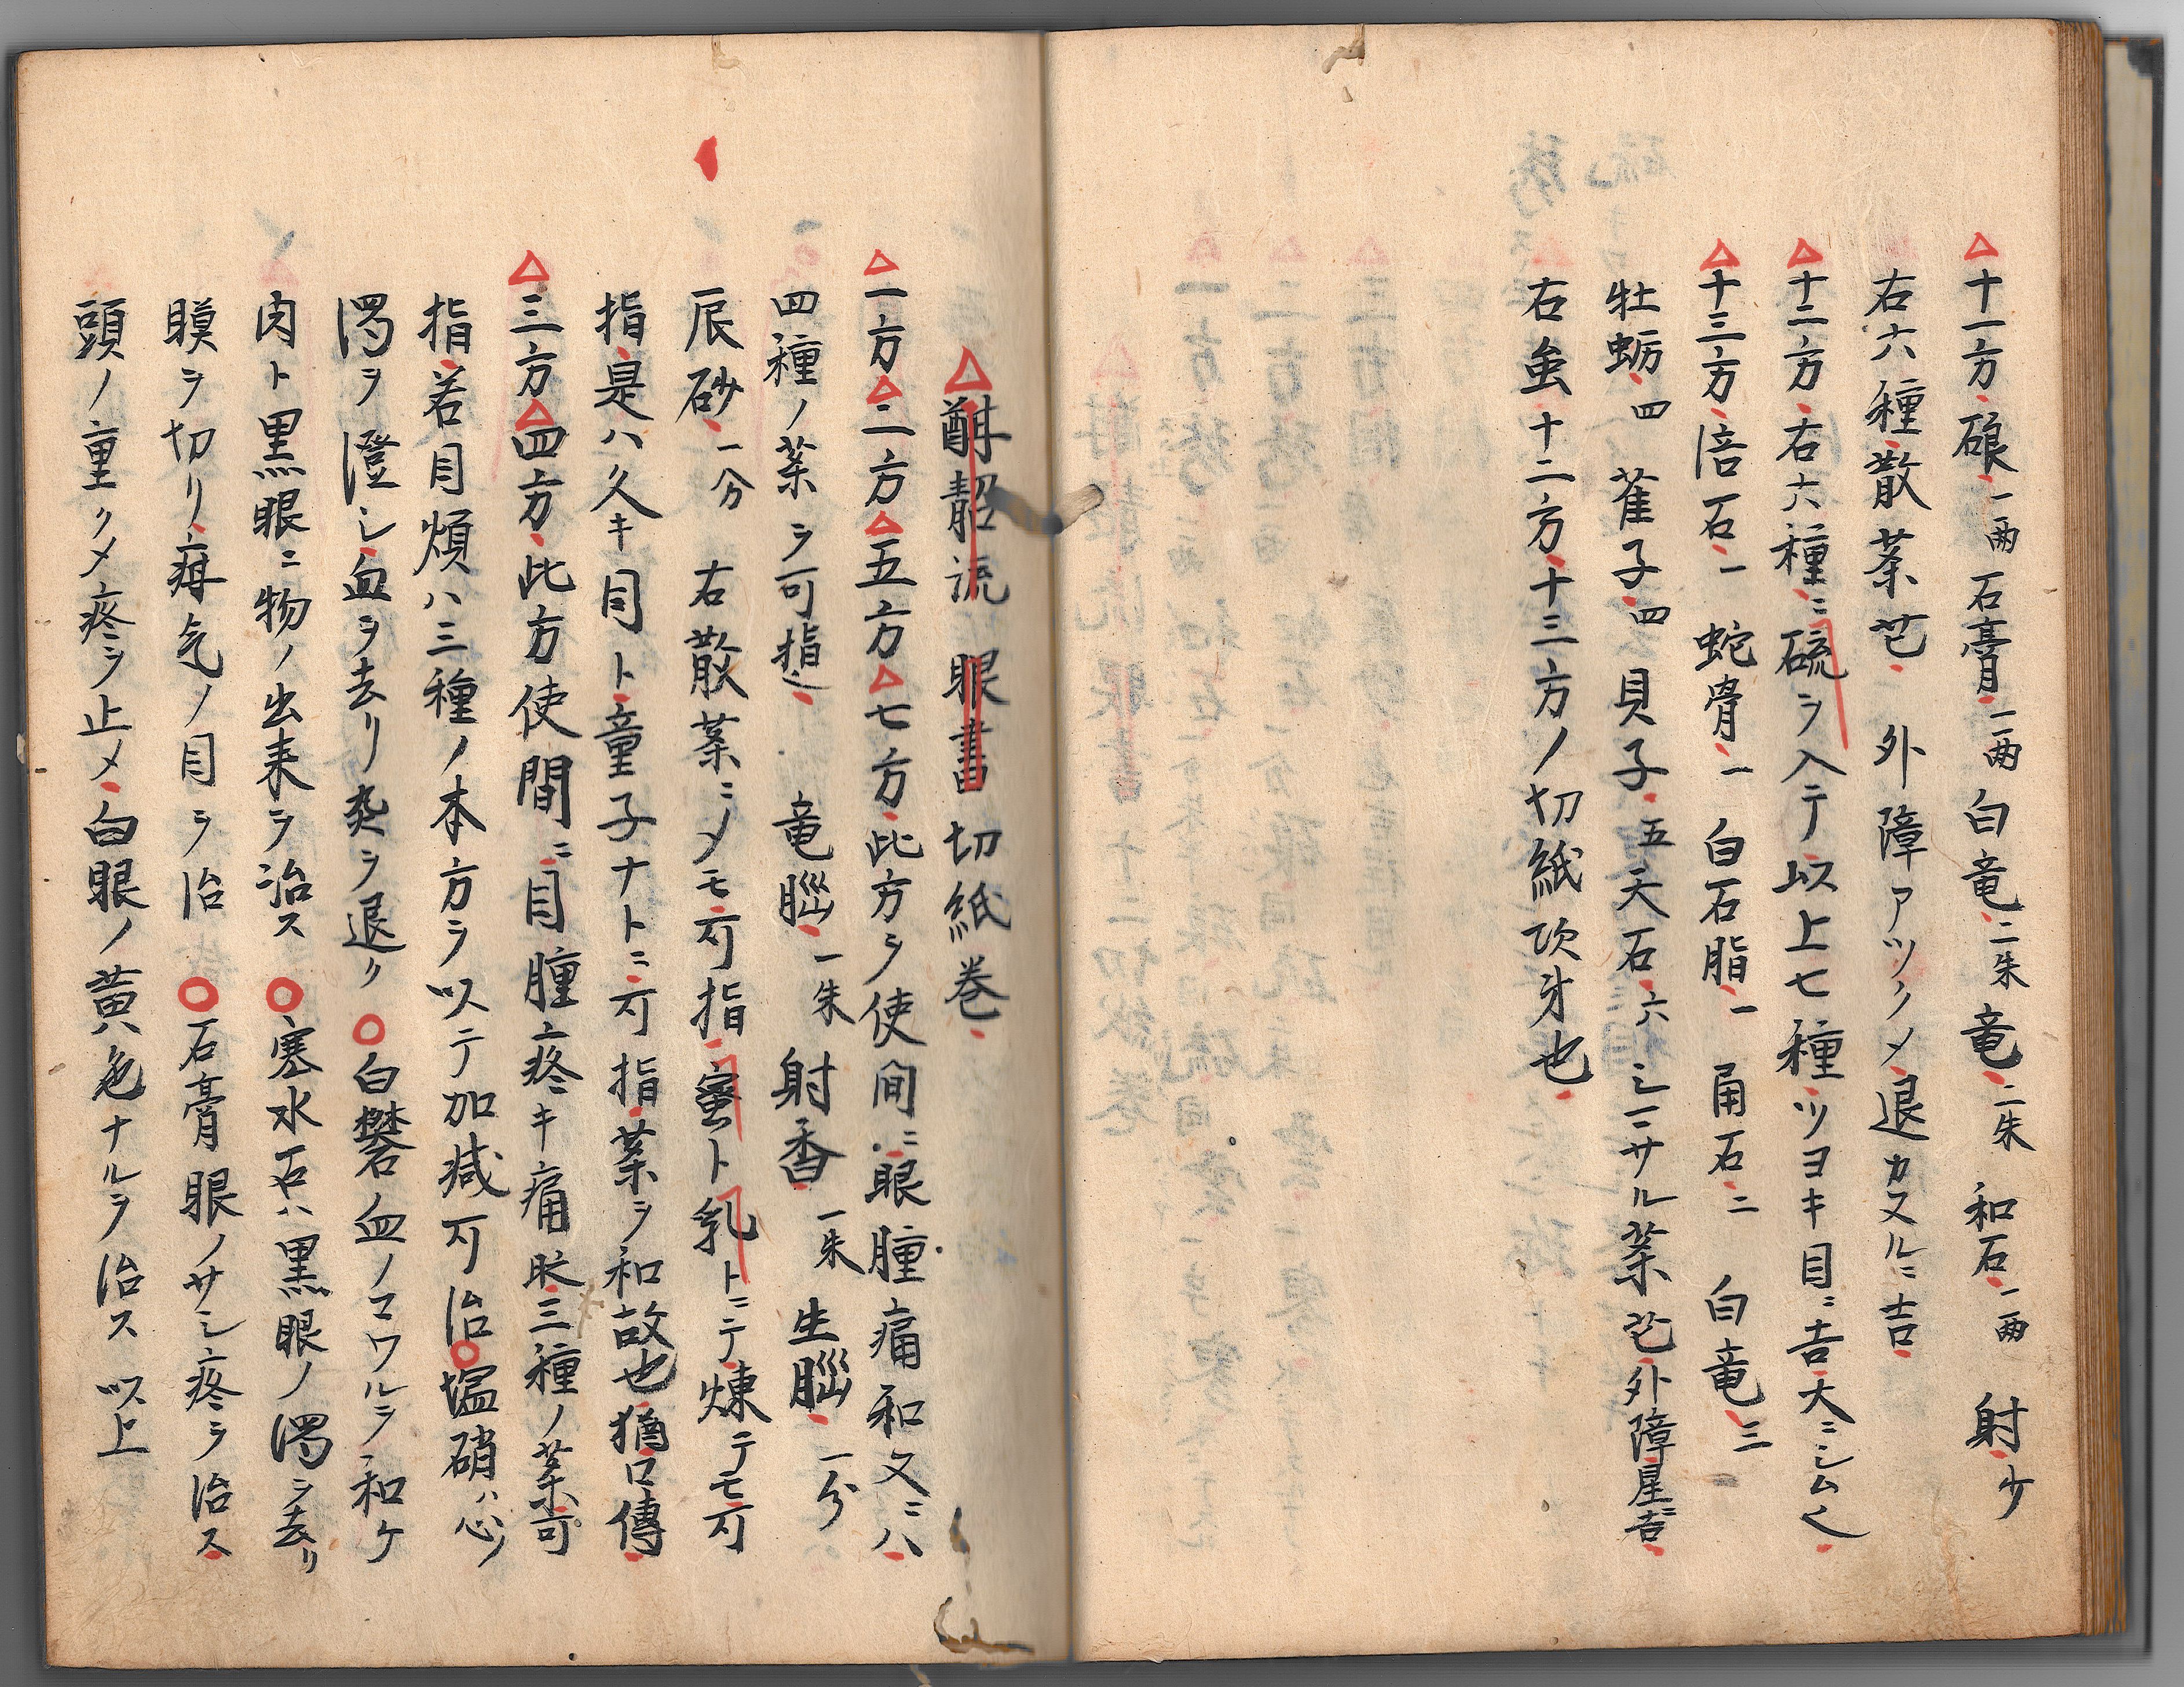 △十一方硠一両 石膏二両 白竜二朱 竜二朱 和石一両 射少
右六種散薬也 外障アツクメ退カヌルニ吉
△十二方右六種ニ硫ヲ入テ以上七種ツヨキ目ニ吉大ニシム
△十三方倍石一 蛇骨一 白石脂一 甬石二 白竜三
牡蛎四 萑子四 貝子五 天石六 シミサル薬也外障星ニ吉
右虫十二方十三方ノ切紙次第也
△酣韶流 眼書 切紙巻
△一方△二方△五方△七方此方ヲ使間ニ眼腫痛和文ニハ
四種ノ薬ヲ可指 竜脳一朱 射香一朱 生脳一分
辰砂一分 右散薬ニメモ可指蜜ト乳トニテ煉テモ可
指是ハ久キ目ト童子ナトニ可指薬ヲ和故也猶口傳
△三方△四方此方使間ニ目腫疼キ痛眹三種ノ薬可
指若目煩ハ三種ノ本方ヲ以テ加減可治○塩硝ハ心ノ
濁ヲ澄シ血ヲ去リ熱ヲ退ク○白礬石血ノコワルヲ和ケ
肉ト黒眼ニ物ノ出来ヲ治ス○寒水石ハ黒眼ノ濁ヲ去リ
瞙ヲ切リ痺気ノ目ヲ治○石膏眼ノサシ疼ヲ治ス
頭ノ重クメ疼ヲ止メ白眼ノ黄色ナルヲ治ス 以上